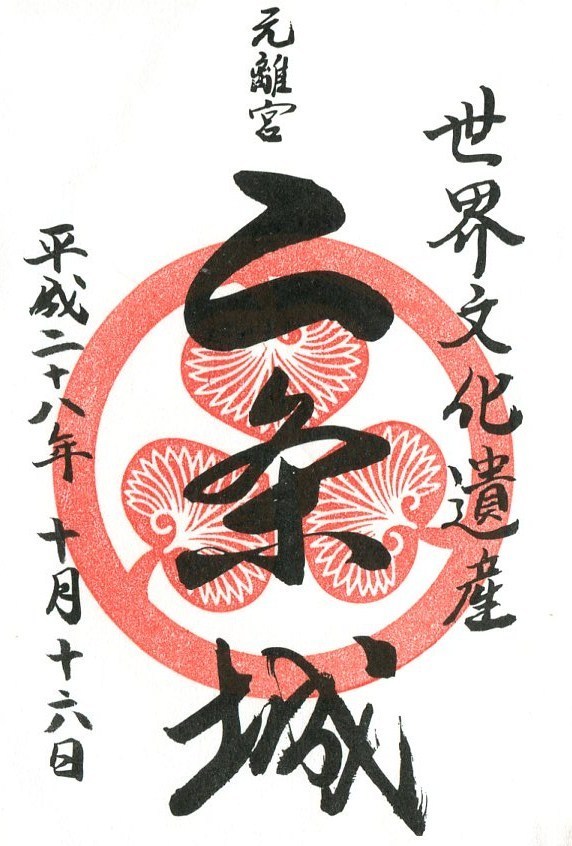 世界文化遺産
元離宮
二条城
平成二十八年 十月十六日